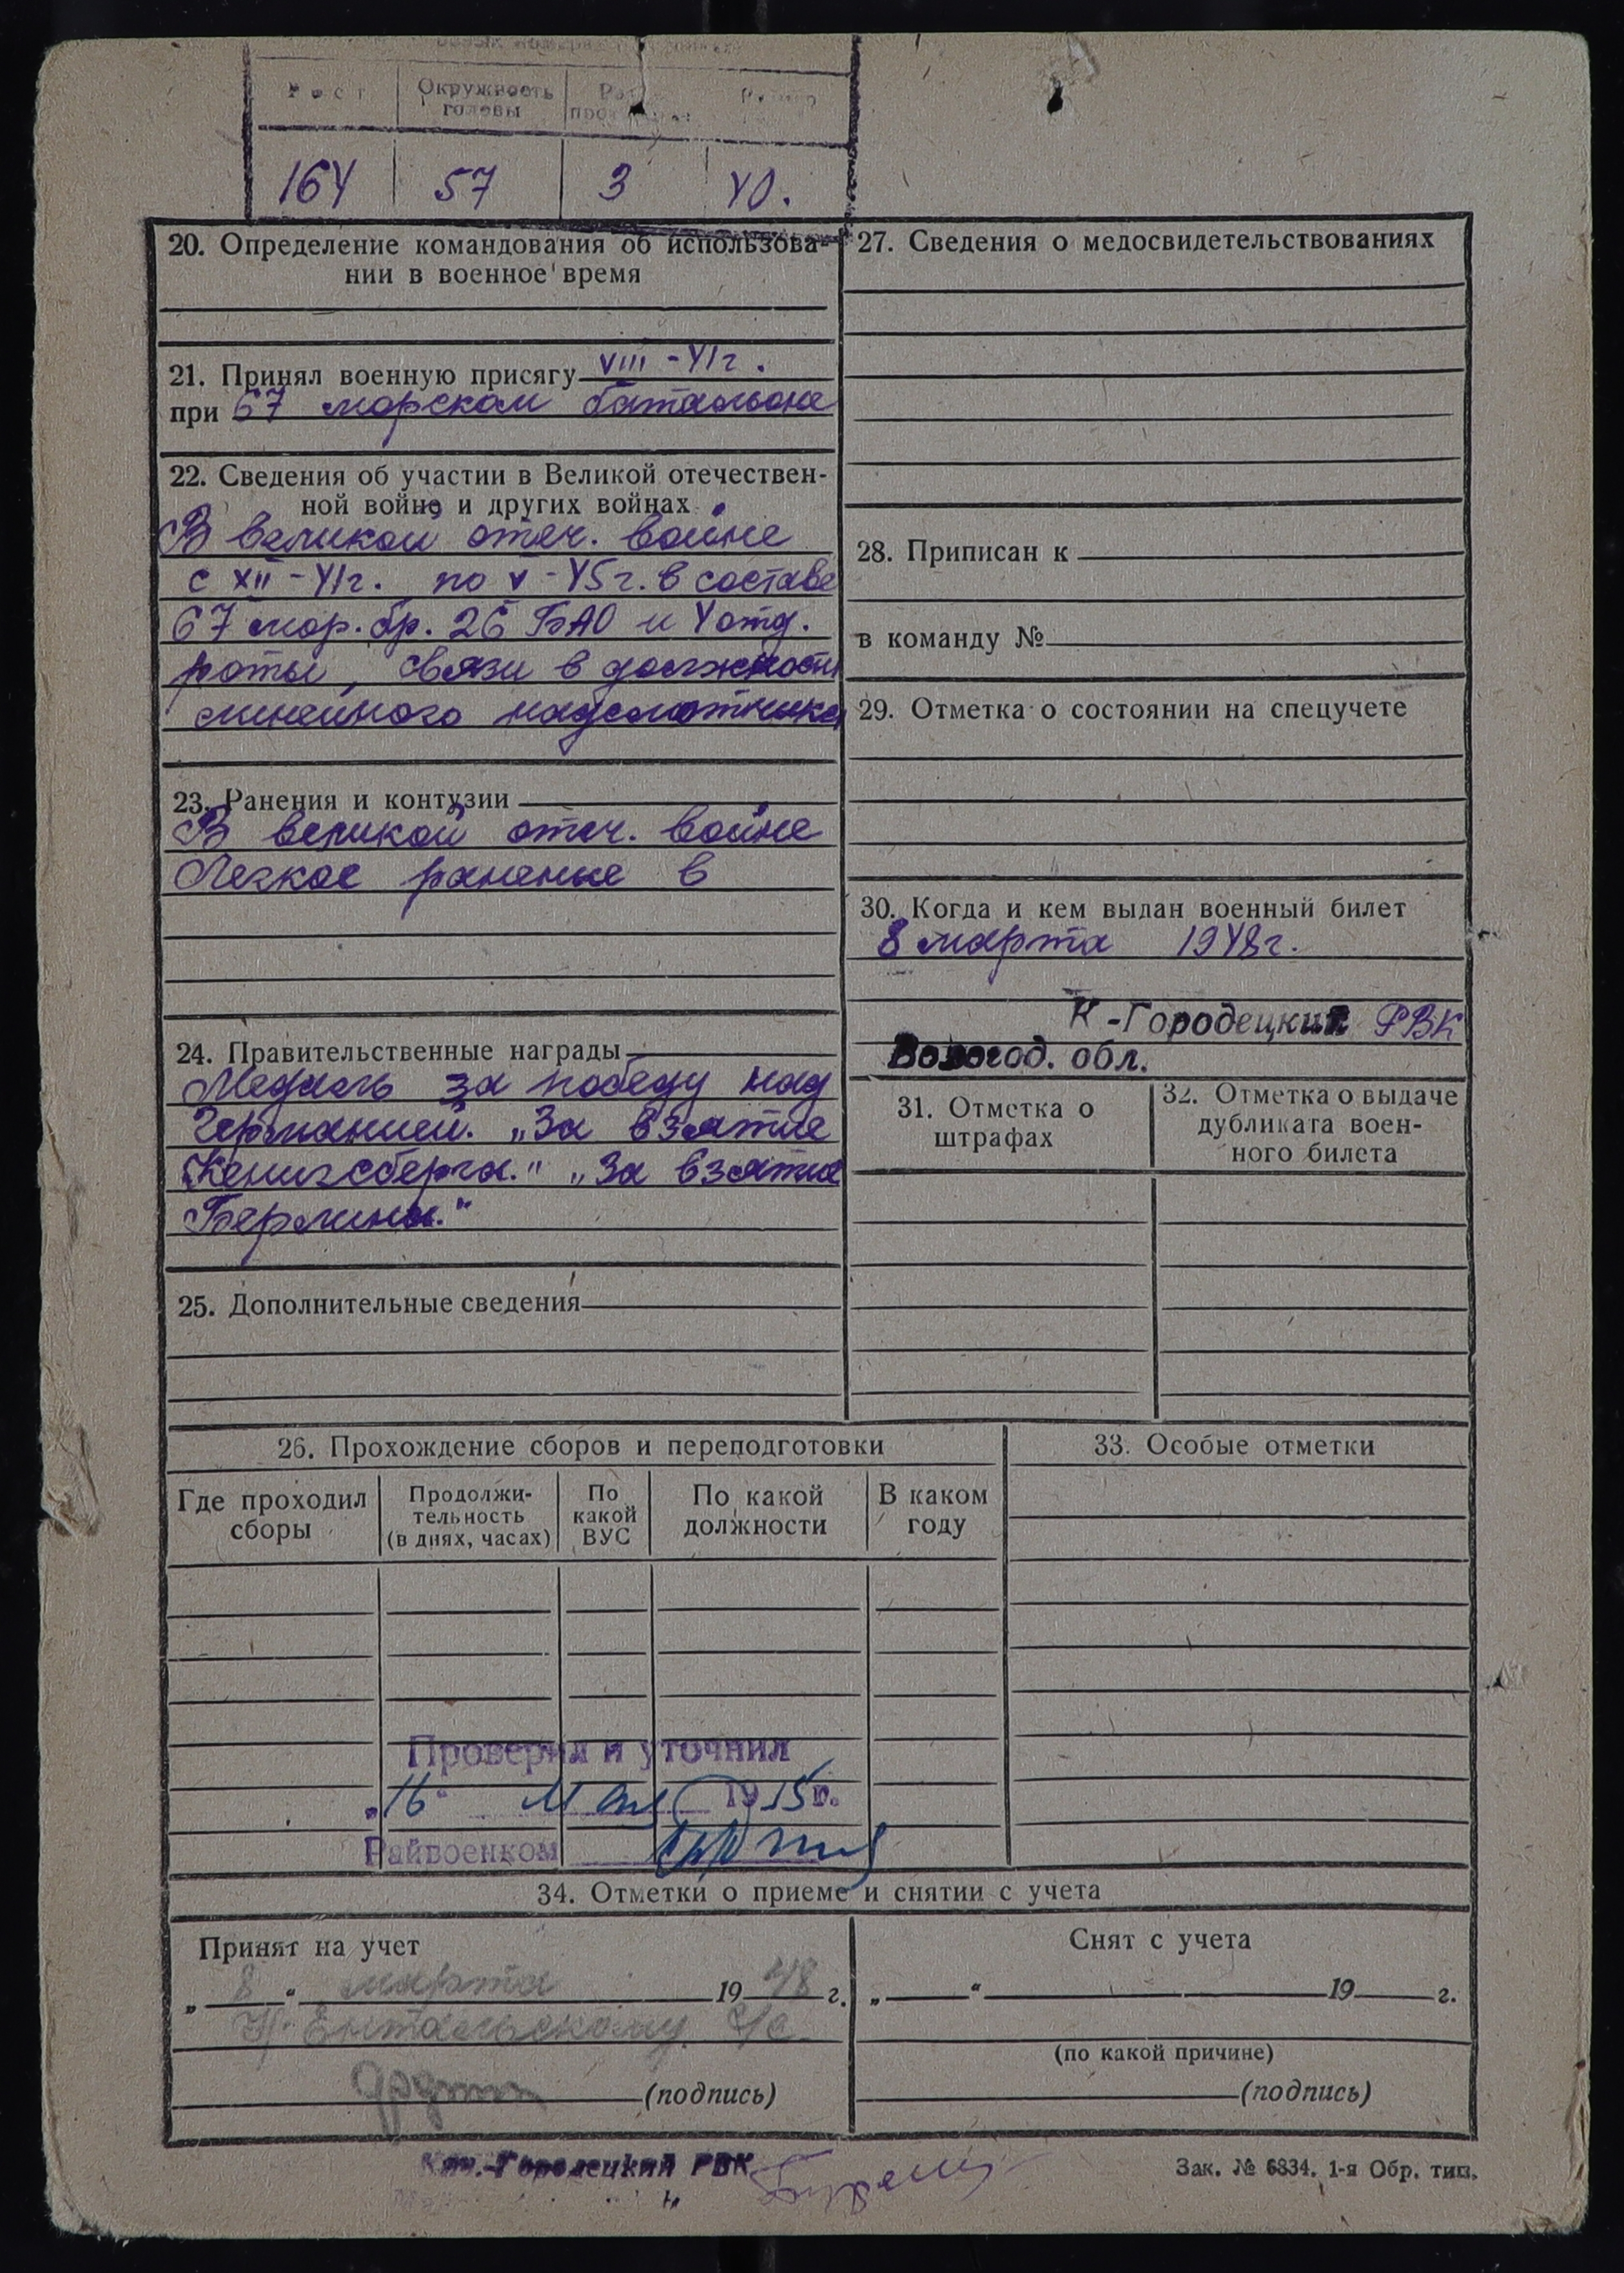 Рост Окружность головы
164 57 3 40.
20. Определение командования об использова-
нии в военное время
21. Принял военную присягу VIII-41г.
при 67 морском батальоне
22. Сведения об участии в Великой отечествен-
ной войне и других войнах
В великой отеч. войне
с XII-41г. по V-45г. в составе
67 мор. бр. 26 БАО и 4 отд.
роты, связи в должности
линейного надсмотрщика
23. Ранения и контузии
В великой отеч. войне
Легкое ранение в
24. Правительственные награды
Медаль за победу над
Германией. „За взятие
Кенигсберга." „За взятие
Берлина."
25. Дополнительные сведения
27. Сведения о медосвидетельствованиях
28. Приписан к
в команду №
29. Отметка о состоянии на спецучете
30. Когда и кем выдан военный билет
8 марта 1948г.
К-Городецкий РВК
Вологод. обл.
31. Отметка о
штрафах
32. Отметка о выдаче
дубликата воен-
ного билета
26. Прохождение сборов и переподготовки
Где проходил
сборы
Продолжи-
тельность
(в днях, часах)
По
какой
ВУС
По какой
должности
В каком
году
33. Особые отметки
Проверил и уточнил
„16" мая 19 г.
Райвоенком
34. Отметки о приеме и снятии с учета
Принят на учет
„8" марта 1948 г.
Ентальскому с/с
(подпись)
Снят с учета
„ " 19 г.
(по какой причине)
(подпись)
Кич.-Городецкий РВК
Зак. № 6834. 1-я Обр. тип.